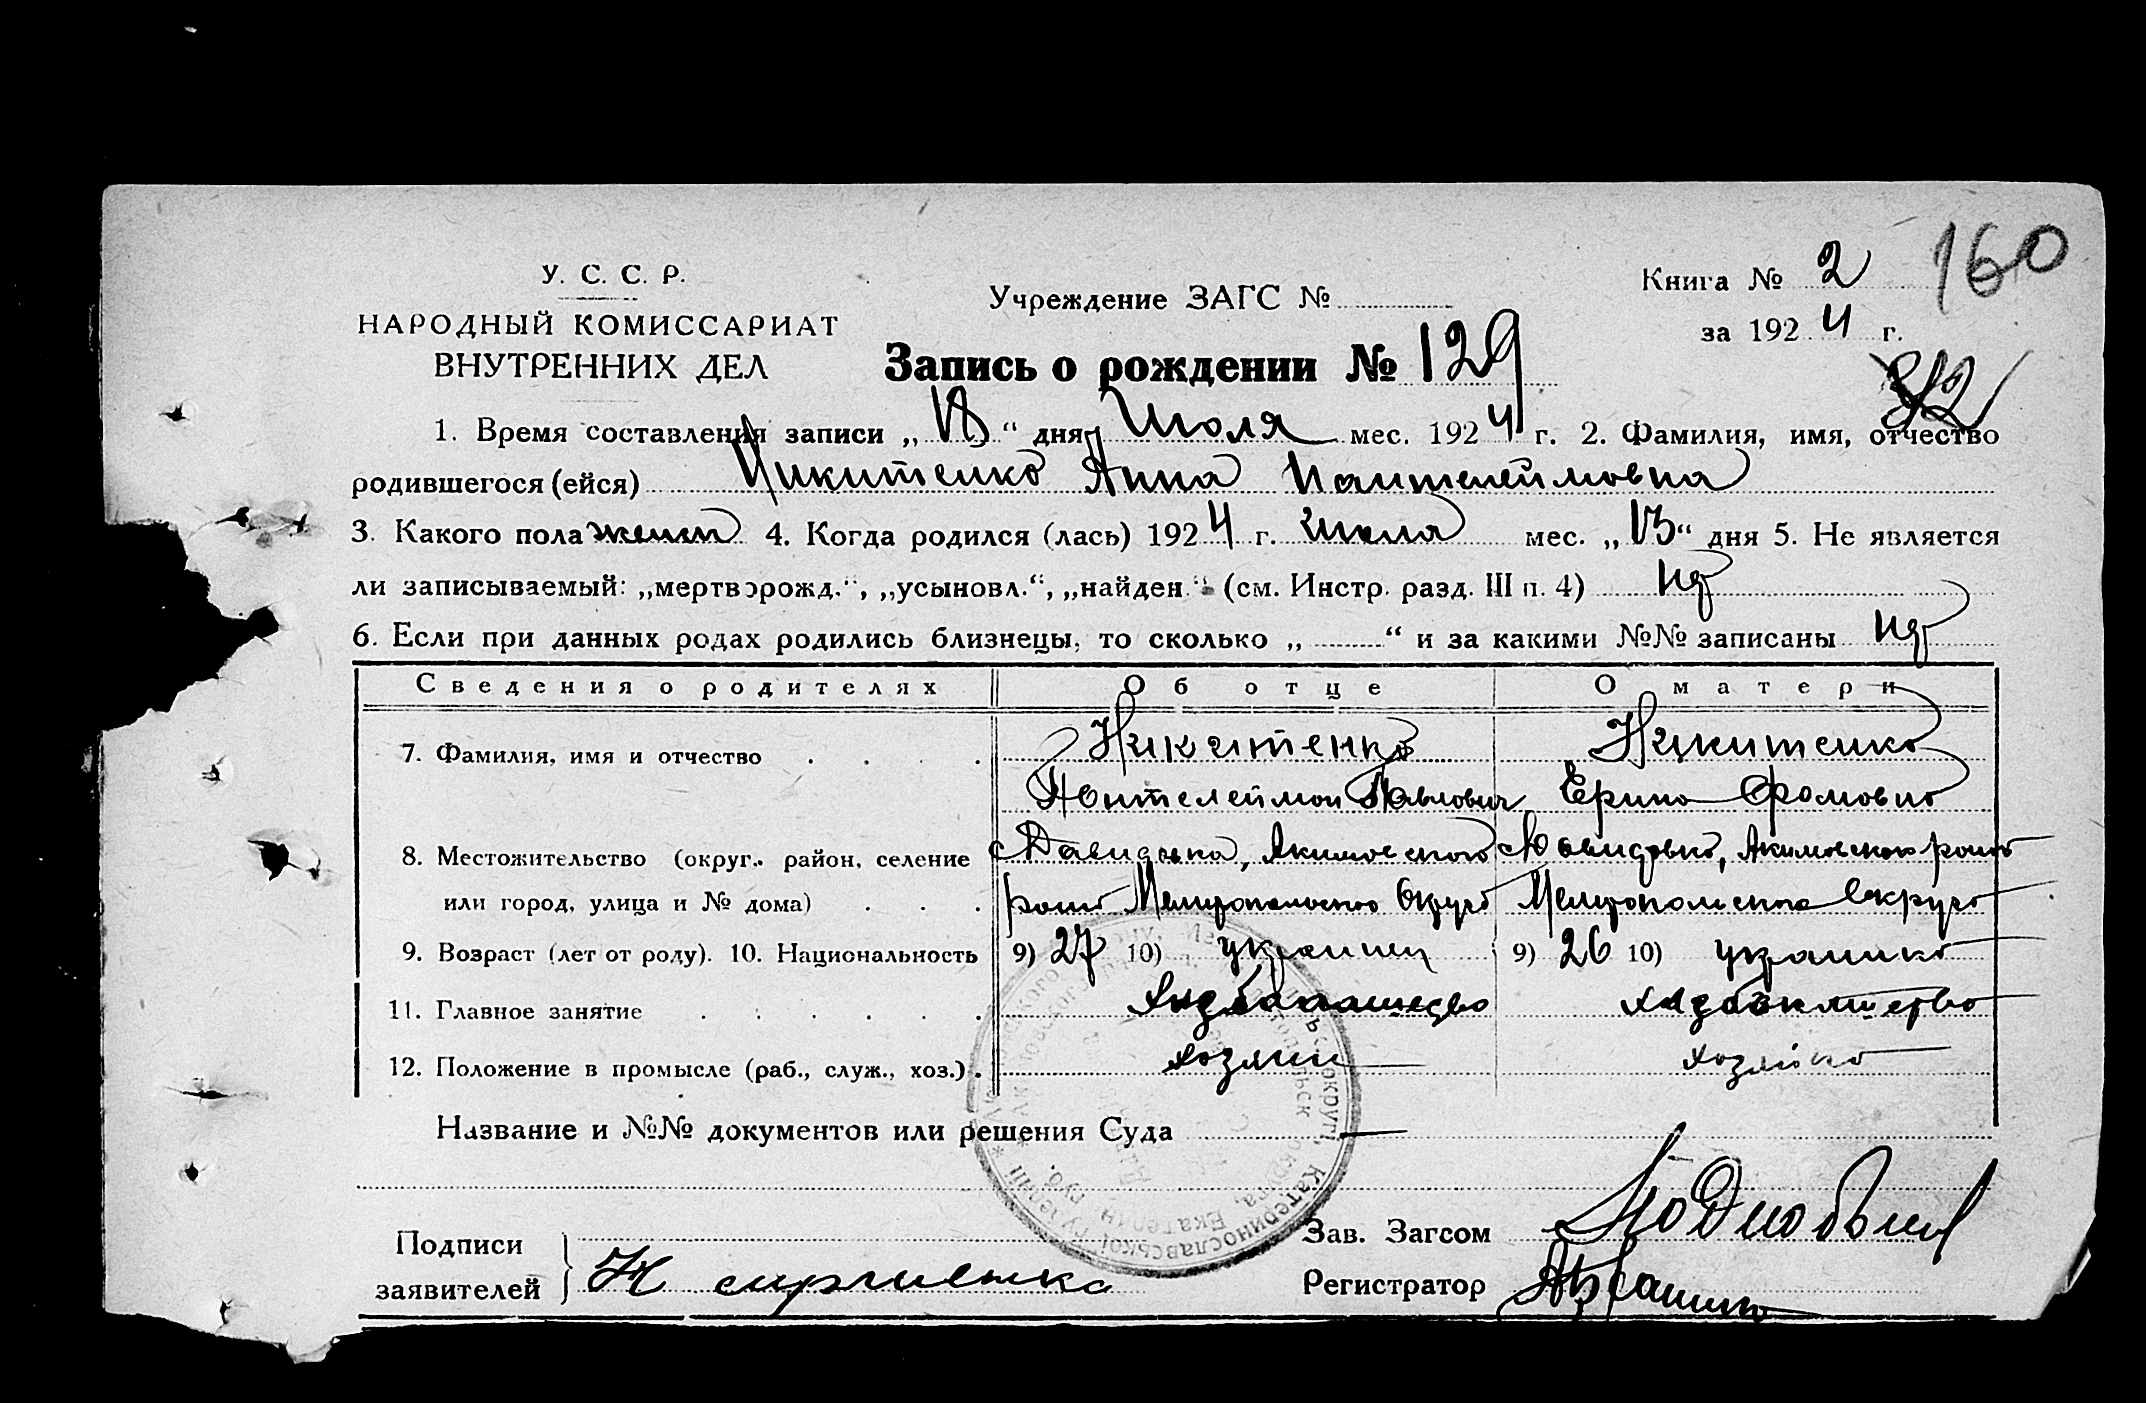 160
У. С. С. Р.
НАРОДНЫЙ КОМИССАРИАТ
ВНУТРЕННИХ ДЕЛ
Учреждение ЗАГС №
Книга № 2
за 1924 г.
Запись о рождении № 129
1. Время составления записи „ “ дня Июля мес. 1924 г. 2. Фамилия, имя, отчество
родившегося (ейся) Никитенко Анна Пантелеймовна
3. Какого пола женск 4. Когда родился (лась) 1924 г. июля мес. „13“ дня 5. Не является
ли записываемый: „мертворожд.“, „усыновл.“, „найден.“ (см. Инстр. разд. III п. 4) нет
6. Если при данных родах родились близнецы, то сколько „ “ и за какими №№ записаны нет
Сведения о родителях Об отце О матери
7. Фамилия, имя и отчество Никитенко Никитенко
Пантелеймон Павлович Ерина Фомовна
8. Местожительство (округ., район, селение Давидовка, Акимовского Давидовка, Акимовского района
или город, улица и № дома) района Мелитопольского Округа Мелитопольского Округа
9. Возраст (лет от роду). 10. Национальность 9) 27 10) украинец 9) 26 10) украинка
11. Главное занятие Хлебопашество хлебопашество
12. Положение в промысле (раб., служ., хоз.) хозяин хозяйка
Название и №№ документов или решения Суда —
Подписи
заявителей
Зав. Загсом
Регистратор